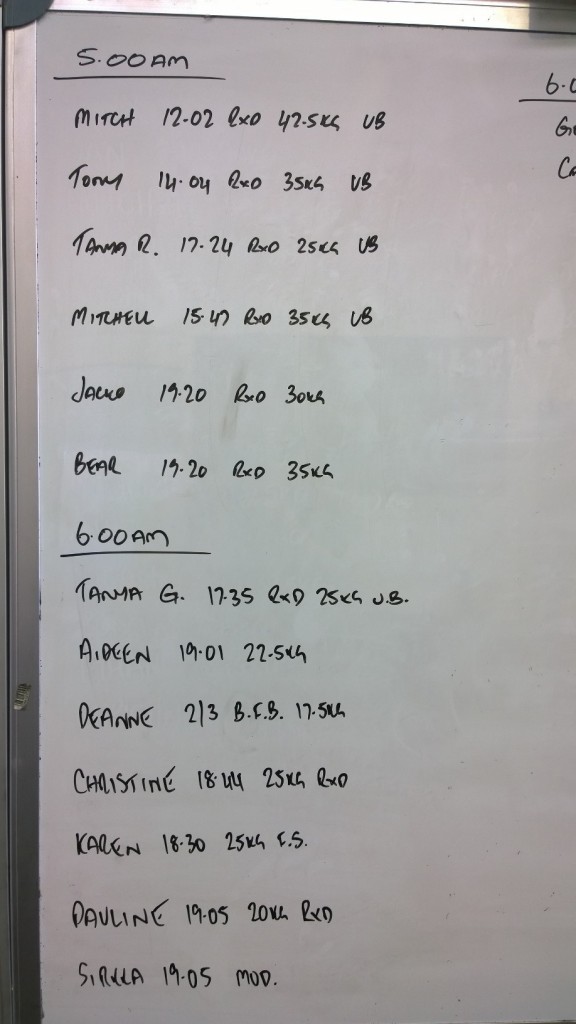 5.00AM
MITCH 12.02 RxD 42.5KG UB
TONY 14.04 RxD 35KG UB
TANYA R. 17.24 RxD 25KG UB
MITCHELL 15.47 RxD 35KG UB
JACKO 19.20 RxD 30KG
BEAR 19.20 RxD 35KG
6.00AM
TANYA G. 17.35 RxD 25KG U.B.
AIDEEN 19.01 22.5KG
DEANNE 2/3 B.F.B. 17.5KG
CHRISTINE 18.44 25KG RxD
KAREN 18.30 25KG F.S.
PAULINE 19.05 20KG RxD
SIRKKA 19.05 MOD.